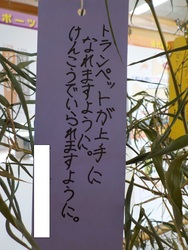 トランペットが上手に
なれますように。
けんこうでいられますように。
ポーツ